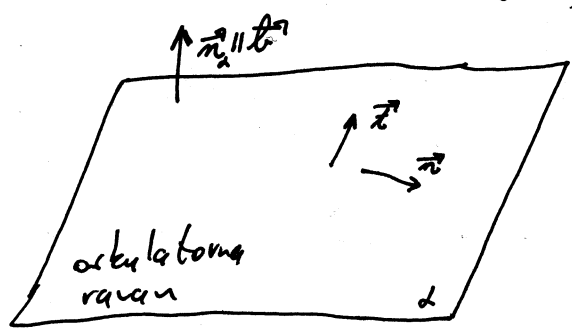 n⃗α ∥ b⃗
t⃗
n⃗
oskulatorna
ravan
α